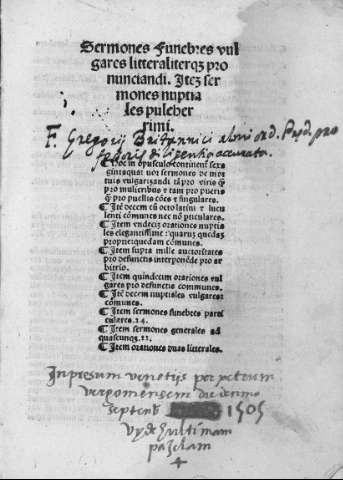 Sermones Funebres vul
gares litteraliterqꝫ pro
nunciandi. Itēꝫ ser
mones nuptia
les pulcher
rimi.
F. Gregorij Britannici almi ord. Pręd. pro
diligentia accurata.
Hoc in opusculo continent̄ sexa
gintaquattuor sermones de mor
tuis vulgarizandi tā pro viris qꝫ
pro mulieribus ⁊ tam pro pueris
qꝫ pro puellis cōes ⁊ singulares.
¶ Itē decem cū octo latini ⁊ lucu
lenti cōmunes nec nō pticulares.
¶ Item vndecim orationes nuptia
les elegantissime : quarū quedāꝫ
proprie quedam cōmunes.
¶ Item supra mille auctoritates
pro defunctis interponēde pro ar
bitrio.
¶ Item quindecim orationes vul
gares pro defunctis communes.
¶ Itē decem nuptiales vulgares
cōmunes.
¶ Item sermones funebres parti
culares.24.
¶ Item sermones generales ad
quascunqꝫ.22.
¶ Item orationes duas litterales.
Inpresum venetijs per petrum
vergomensem die denmo
septenb 1505
Vyde hultimam
pazelam